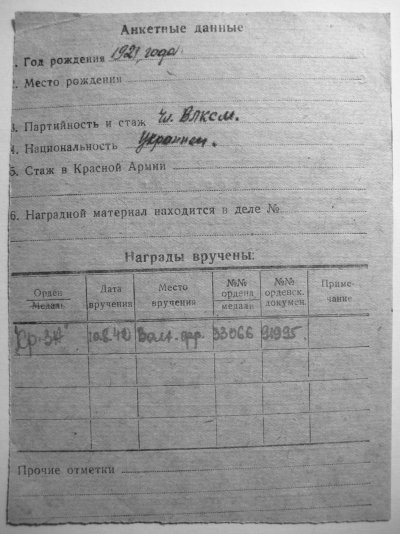 Анкетные данные
1. Год рождения 1921 года
2. Место рождения
3. Партийность и стаж Чл. ВЛКСМ.
4. Национальность Украинец.
5. Стаж в Красной Армии
6. Наградной материал находится в деле №
Награды вручены:
Орден Медаль
Дата вручения
Место вручения
№№ ордена медали
№№ орденск. докумен.
Приме- чание
"Кр. Зн" Волх. фр. 33066 91995
Прочие отметки